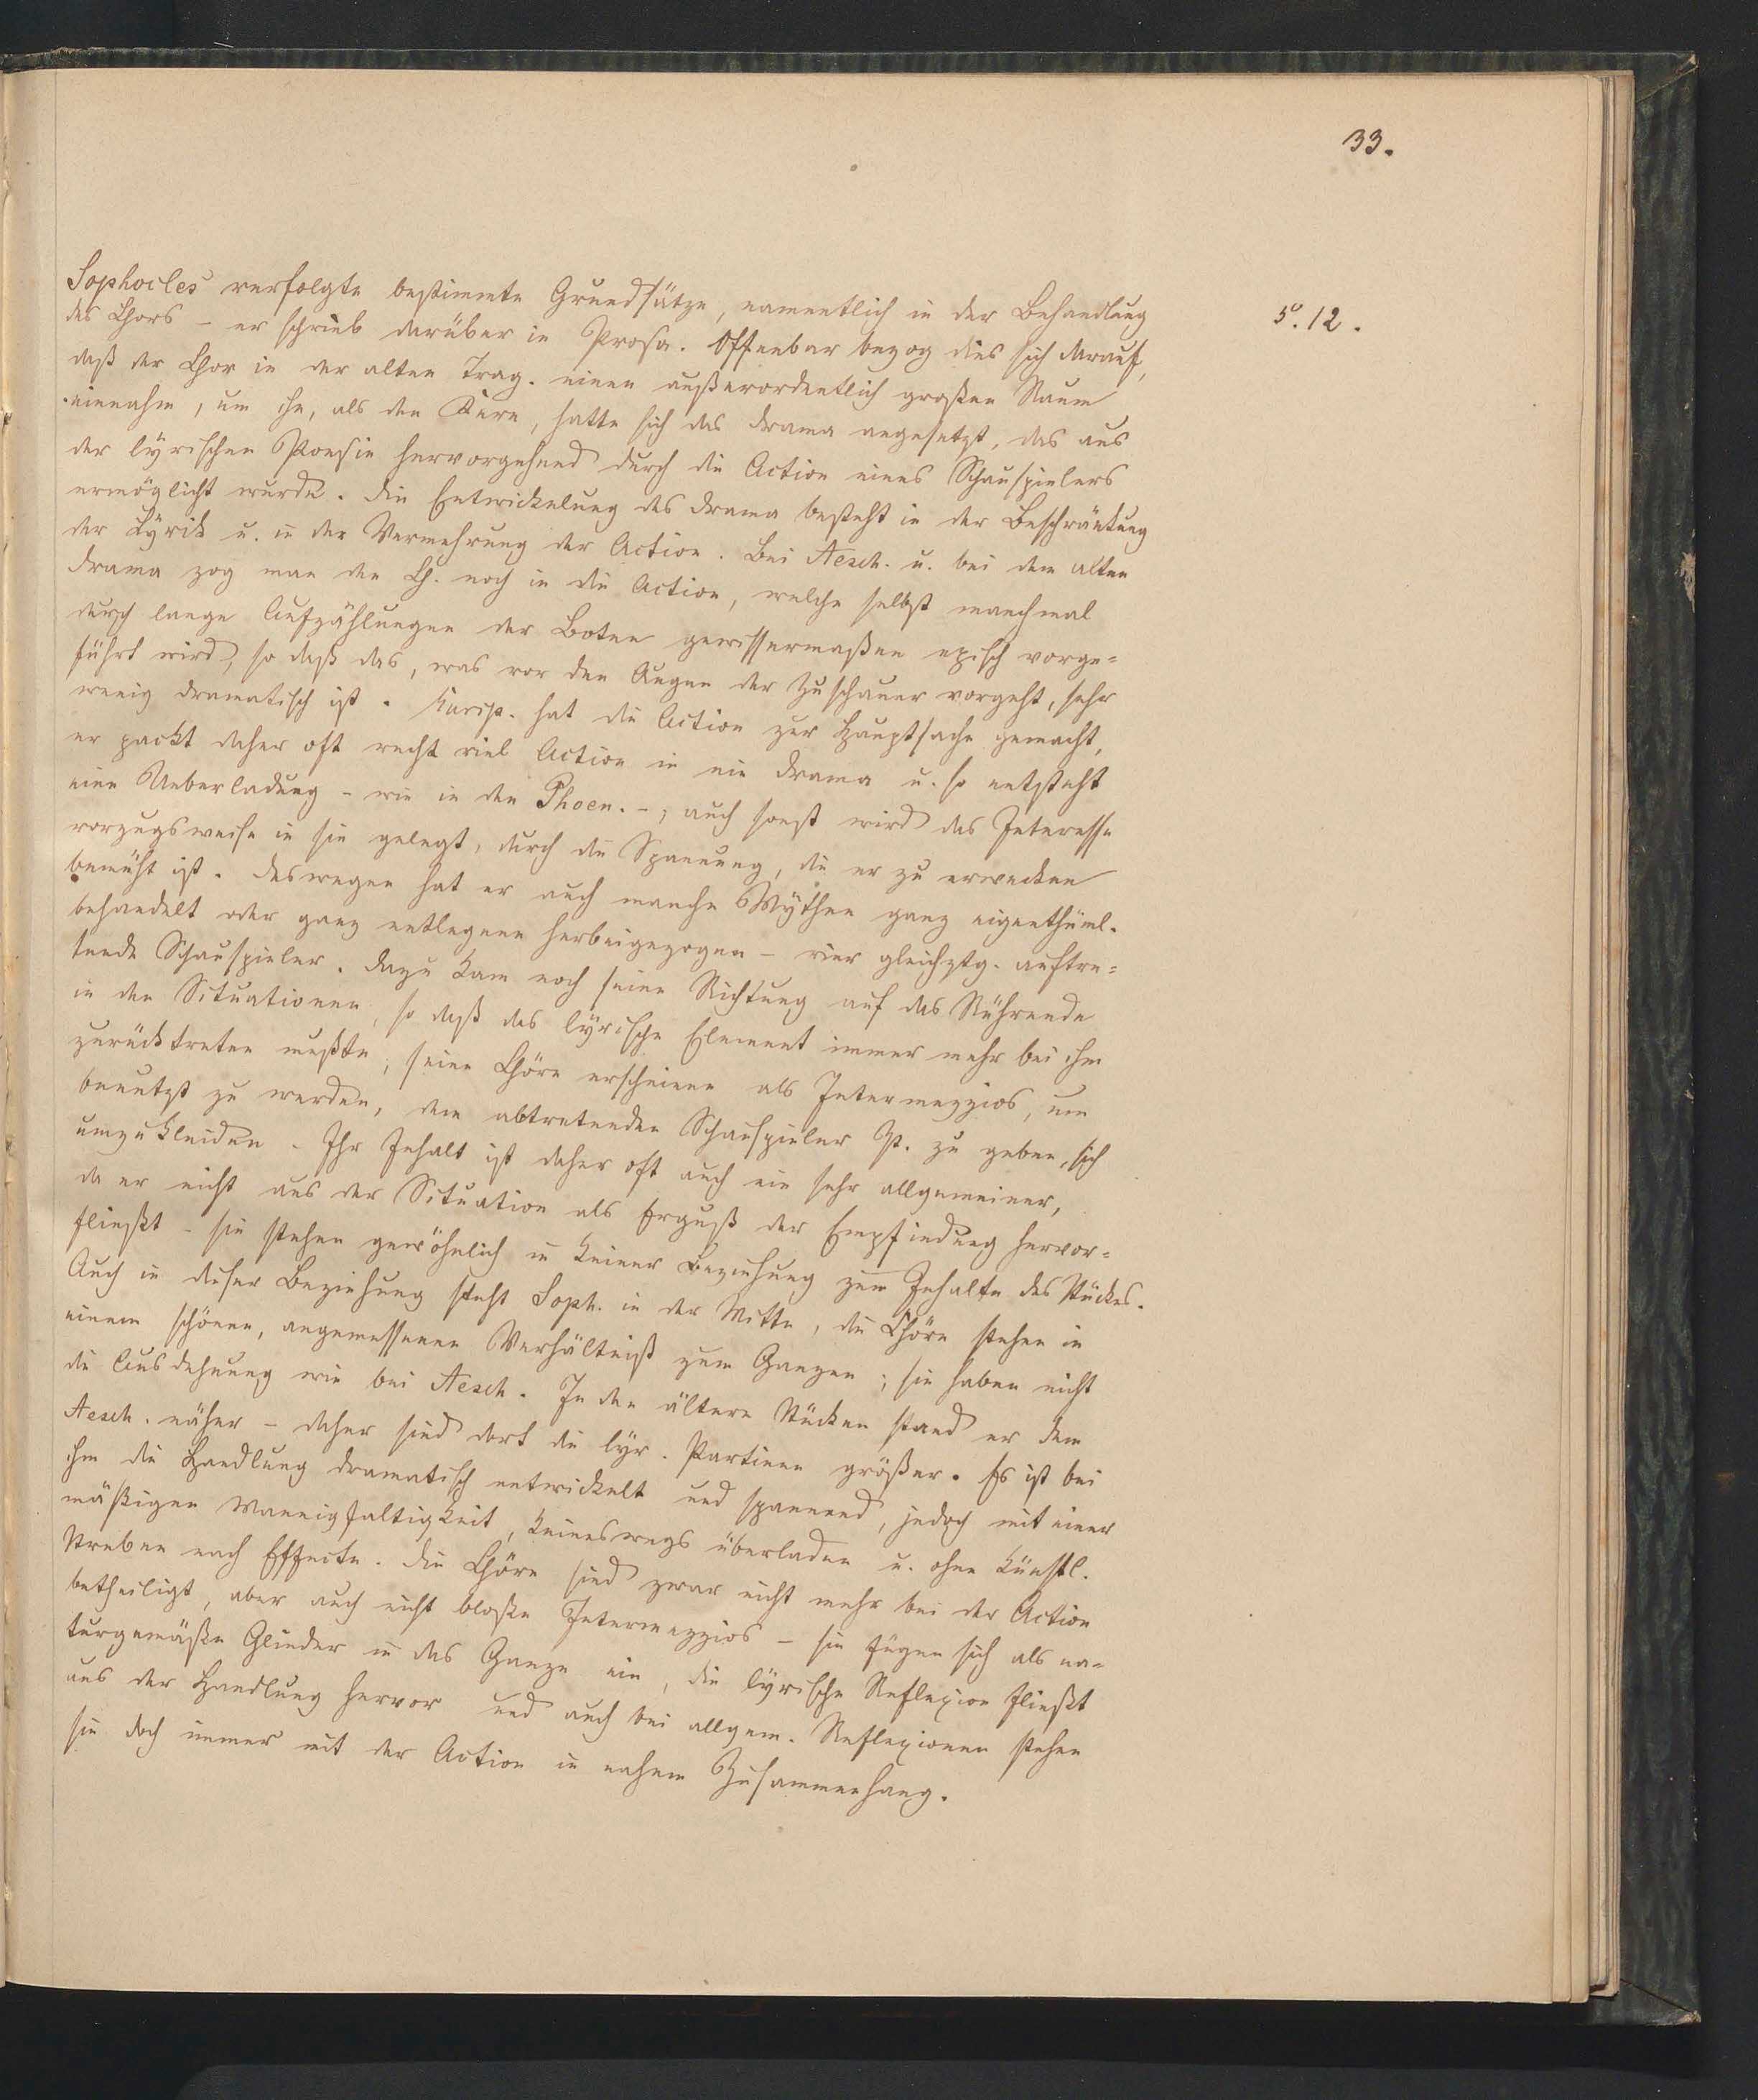 33.
5.12.
Sophocles verfolgte bestimmte Grundsätze, namentlich in der Behandlung
des Chors – er schrieb darüber in Prosa. Offenbar bezog dies sich darauf,
daß der Chor in der alten Trag. einen außerordentlich großen Raum
einnahm, um ihn, als den Kern, hatte sich das Drama angesetzt, das aus
der lyrischen Poesie hervorgehend durch die Action eines Schauspielers
ermöglicht wurde. Die Entwickelung des Drama besteht in der Beschränkung
der Lyrik u. in der Vermehrung der Action. Bei Aesch. u. bei dem alten
Drama zog man den Ch. noch in die Action, welche selbst manchmal
durch lange Aufzählungen der Boten gewissermaßen episch vorge-
führt wird, so daß das, was vor den Augen der Zuschauer vorgeht, sehr
wenig dramatisch ist. Eurip. hat die Action zur Hauptsache gemacht,
er packt daher oft recht viel Action in ein Drama u. so entsteht
eine Ueberladung – wie in den Phoen. –; auch sonst wird das Interesse
vorzugsweise in sie gelegt, durch die Spannung, die er zu erwecken
bemüht ist. Deswegen hat er auch manche Mythen ganz eigenthüml.
behandelt oder ganz entlegene herbeigezogen – vier gleichztg. auftre-
tende Schauspieler. Dazu kam noch seine Richtung auf das Rührende
in den Situationen, so daß das lyrische Element immer mehr bei ihm
zurücktreten mußte; seine Chöre erscheinen als Intermezzios, um
benutzt zu werden, den abtretenden Schauspieler Zt. zu geben, sich
umzukleiden. Ihr Inhalt ist daher oft auch ein sehr allgemeiner,
da er nicht aus der Situation als Erguß der Empfindung hervor-
fließt – sie stehen gewöhnlich in keiner Beziehung zum Inhalte des Stückes.
Auch in dieser Beziehung steht Soph. in der Mitte, die Chöre stehen in
einem schönen, angemessenen Verhältniß zum Ganzen; sie haben nicht
die Ausdehnung wie bei Aesch. In den ältern Stücken stand er dem
Aesch. näher – daher sind dort die lyr. Partieen größer. Es ist bei
ihm die Handlung dramatisch entwickelt und spannend, jedoch mit einer
mäßigen Mannigfaltigkeit, keineswegs überladen u. ohne künstl.
Streben nach Effecte. Die Chöre sind zwar nicht mehr bei der Action
betheiligt, aber auch nicht bloße Intermezzios – sie fügen sich als na-
turgemäße Glieder in das Ganze ein, die lyrische Reflexion fließt
aus der Handlung hervor und auch bei allgem. Reflexionen stehen
sie doch immer mit der Action in nahem Zusammenhang.